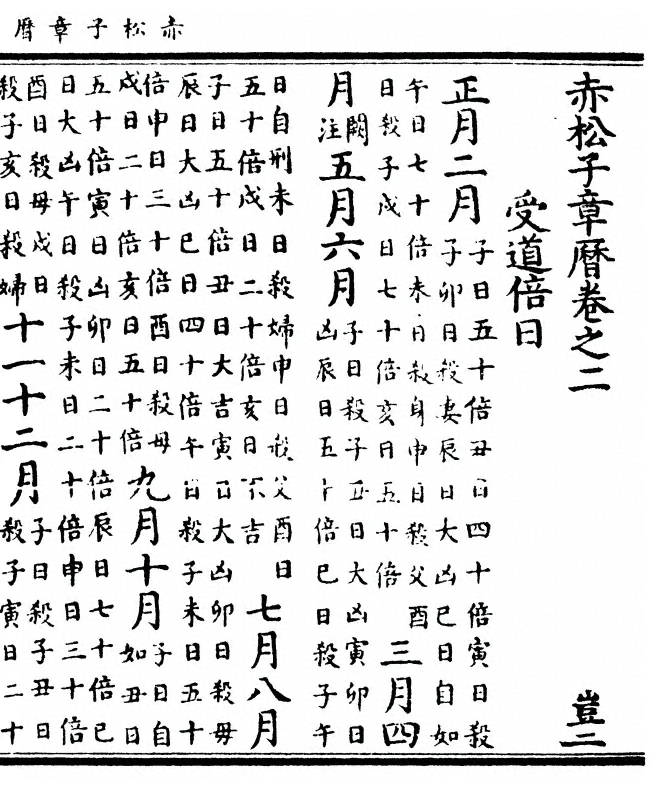 赤松子章暦
赤松子章暦卷之二 豈二
受道倍日
正月二月
子日五十倍丑日四十倍寅日殺
子卯日殺妻辰日大凶巳日自如
午日七十倍未日殺身申日殺父酉
日殺子戌日七十倍亥日五十倍
三月四
月
闕
注
五月六月
子日殺子丑日大凶寅卯日
凶辰日五十倍巳日殺子午
日自刑未日殺婦申日殺父酉日
五十倍戌日二十倍亥日不吉
七月八月
子日五十倍丑日大吉寅日大凶卯日殺母
辰日大凶巳日四十倍午日殺子未日五十
倍申日三十倍酉日殺母
戌日二十倍亥日五十倍
九月十月
子日自
如丑日
五十倍寅日凶卯日二十倍辰日七十倍巳
日大凶午日殺子未日二十倍申日三十倍
酉日殺母戌日
殺子亥日殺婦
十一十二月
子日殺子丑日
殺子寅日二十